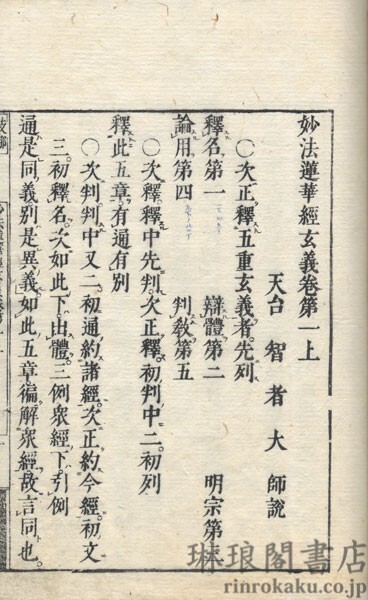 妙法蓮華經玄義卷第一上
天台智者大師說
○次正釋五重玄義者先列
釋名第一 辯體第二 明宗第三
論用第四 判教第五
○次釋釋中先判次正釋初判中二初列
釋此五章有通有別
○次判判中又二初通約諸經次正約今經初文
三初釋名次如此下出體三例衆經下引例
通是同義別是異義如此五章徧解衆經故言同也
琳琅閣書店
rinrokaku.co.jp